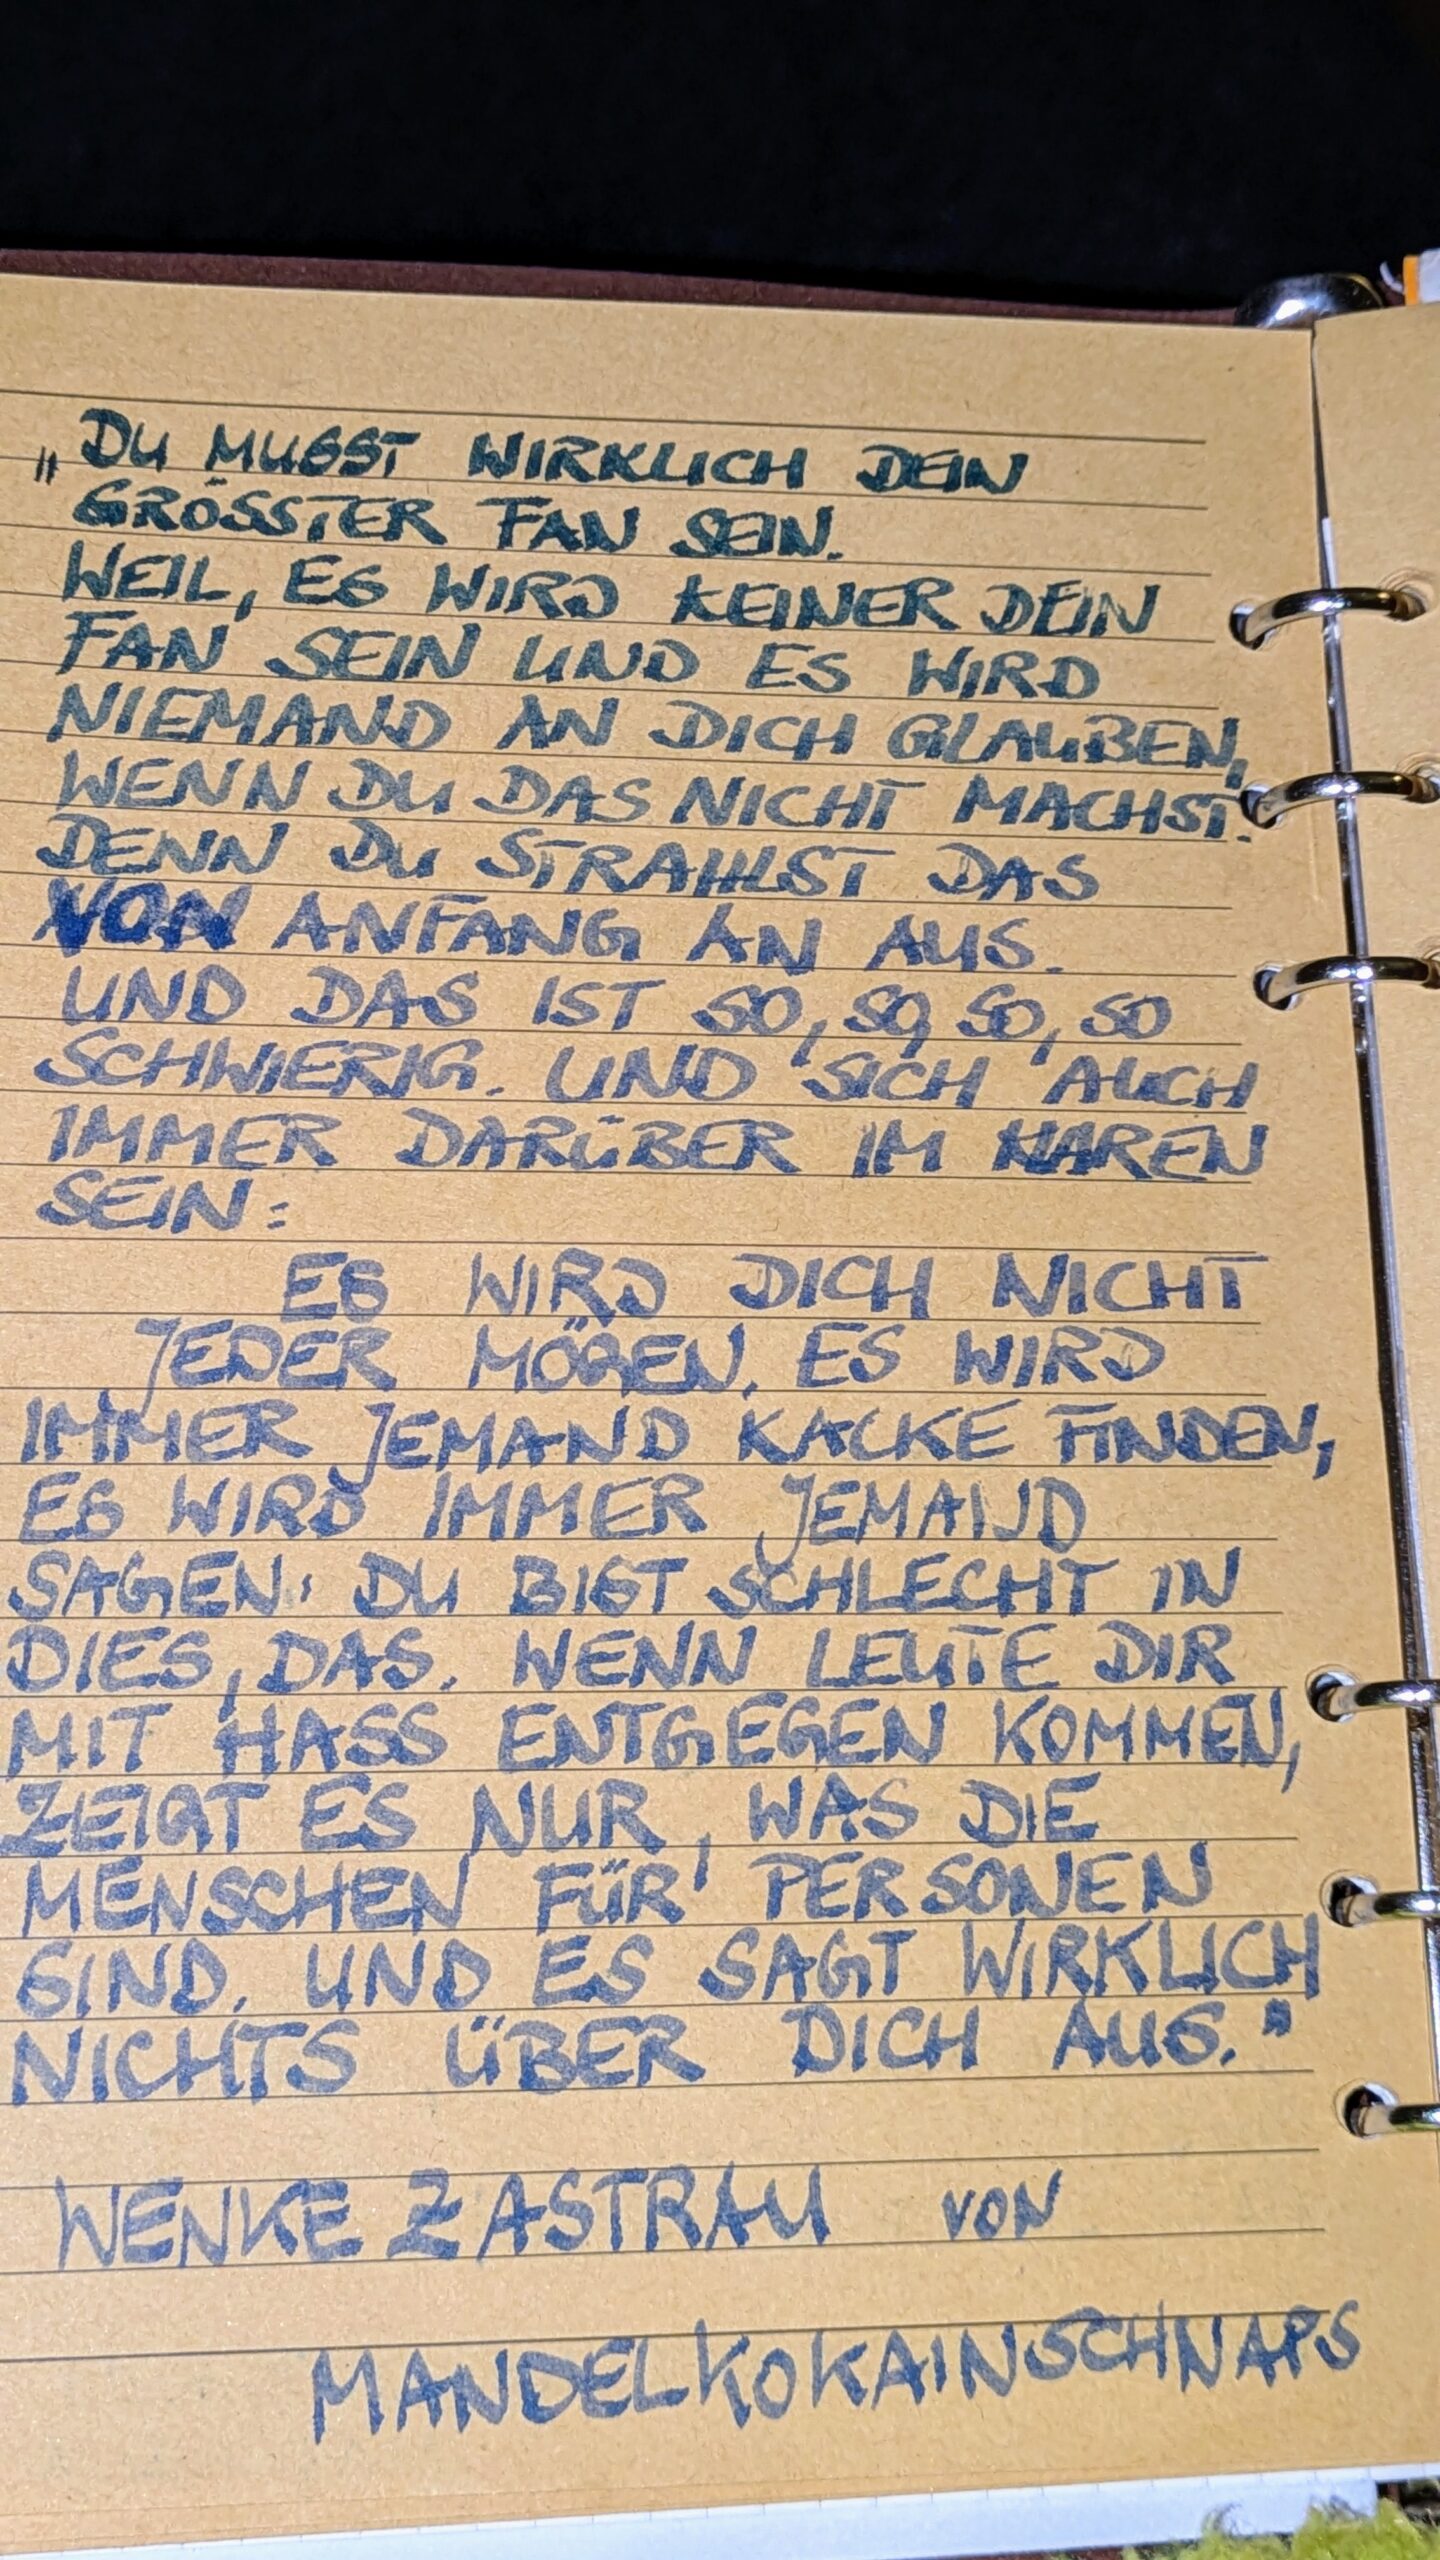 „DU MUSST WIRKLICH DEIN
GRÖSSTER FAN SEIN.
WEIL, ES WIRD KEINER DEIN
FAN SEIN UND ES WIRD
NIEMAND AN DICH GLAUBEN,
WENN DU DAS NICHT MACHST.
DENN DU STRAHLST DAS
VON ANFANG AN AUS.
UND DAS IST SO, SO, SO, SO
SCHWIERIG. UND SICH AUCH
IMMER DARÜBER IM KAREN
SEIN:
ES WIRD DICH NICHT
JEDER MÖGEN. ES WIRD
IMMER JEMAND KACKE FINDEN,
ES WIRD IMMER JEMAND
SAGEN: DU BIST SCHLECHT IN
DIES, DAS. WENN LEUTE DIR
MIT HASS ENTGEGEN KOMMEN,
ZEIGT ES NUR, WAS DIE
MENSCHEN FÜR PERSONEN
SIND. UND ES SAGT WIRKLICH
NICHTS ÜBER DICH AUS."
WENKE ZASTRAU VON
MANDELKOKAINSCHNAPS